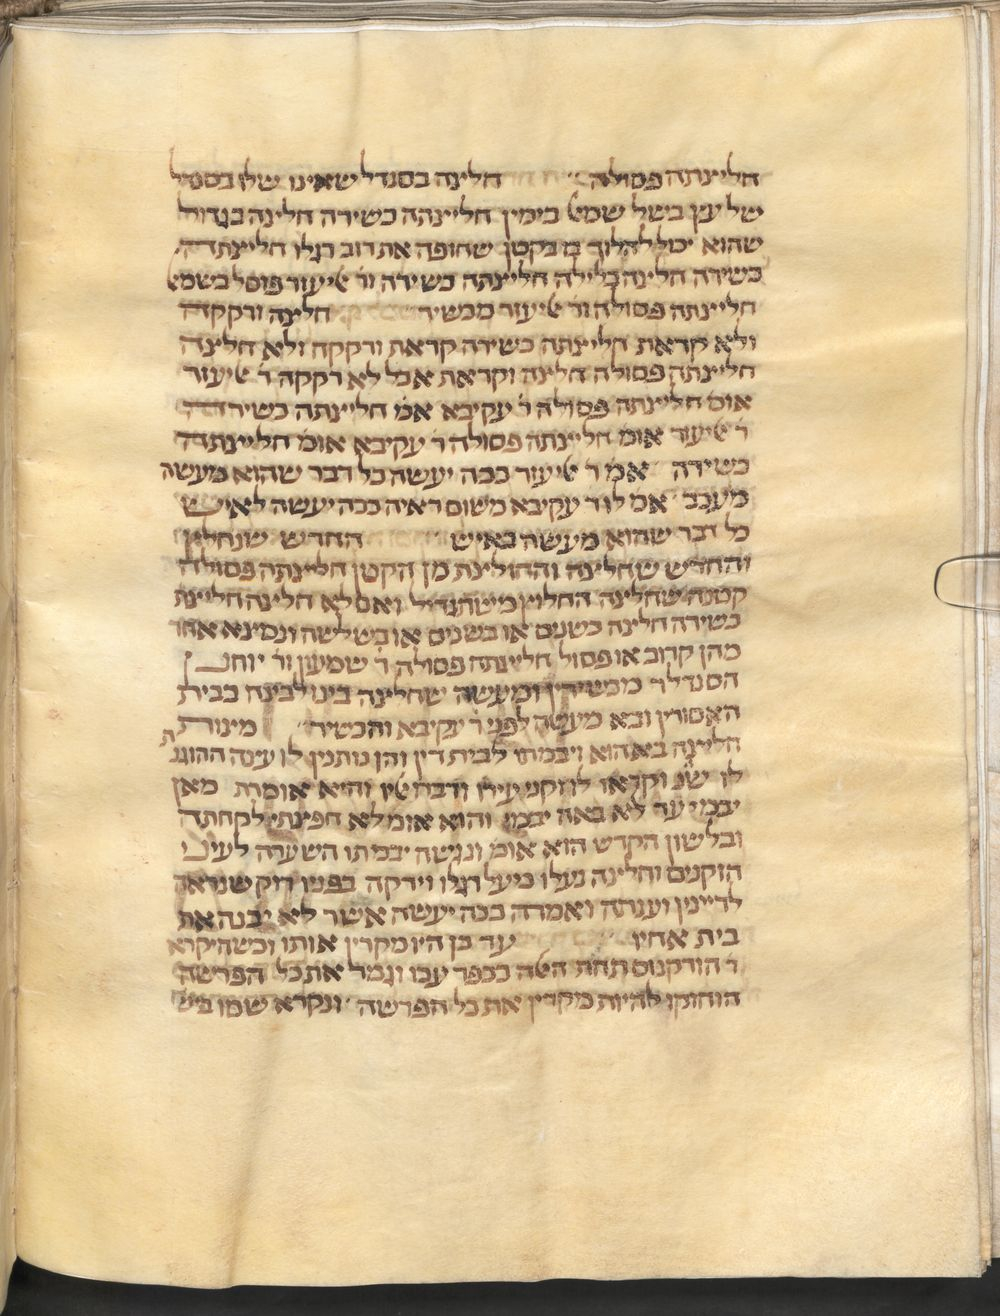 חליצתה פסולה חליצה בסנדל שאינו שלו בסנדל
של עץ בשל שמאל בימין חליצתה כשירה חליצה בגדול
שהוא יכול להלוך בו בקטן שחופה את רוב רגלו חליצתה
כשירה חליצה בלילה חליצתה כשירה ור׳ אליעזר פוסל בשמאל
חליצתה פסולה ור׳ אליעזר מכשיר חלצה ורקקה
ולא קראת חליצתה כשירה קראת ורקקה ולא חלצה
חליצתה פסולה חלצה וקראת אבל לא רקקה ר׳ אליעזר
אומ׳ חליצתה פסולה ר׳ עקיבא אומ׳ חליצתה כשירה
ר׳ אליעזר אומ׳ חליצתה פסולה ר׳ עקיבא אומ׳ חליצתה
כשירה אמ׳ ר׳ אליעזר ככה יעשה כל דבר שהוא מעשה
מעכב אמ׳ לו ר׳ עקיבא משום ראיה ככה יעשה לאיש
כל דבר שהוא מעשה באיש החרש שנחלץ
והחרש שחלצה והחולצת מן הקטן חליצתה פסולה
קטנה שחלצה תחלוץ משתגדיל ואם לא חלצה חליצת
כשירה חלצה בשנים או בשלשה ונמצא אחד
מהן קרוב או פסול חליצתה פסולה ר׳ שמעון ור׳ יוחנן
הסנדלר מכשירין ומעשה שחלצה בינו לבינה בבית
האסורין ובא מעשה לפני ר׳ עקיבא והכשיר מיצות
חליצה בא הוא ויבמתו לבית דין והן נותנין לו עיצה ההוגנת
לו שנ׳ וקראו לו זקני עירו ודברו אליו והיא אומרת מאן
יבמי עד לא אבה יבמי והוא אומ׳ לא חפצתי לקחתה
ובלשון הקדש הוא אומ׳ ונגשה יבמתו השערה לעיני
הזקנים וחלצה נעלו מעל רגלו וירקה בפניו רוק שנראה
לדיינין וענתה ואמרה ככה יעשה אשר לא יבנה את
בית אחיו עד כן היו מקרין אותו וכשהיקרא
ר׳ הורקנוס תחת האלה בכפר עכו וגמר את כל הפרשה
הוחזקו להיות מקרין את כל הפרשה ונקרא שמו ביש׳